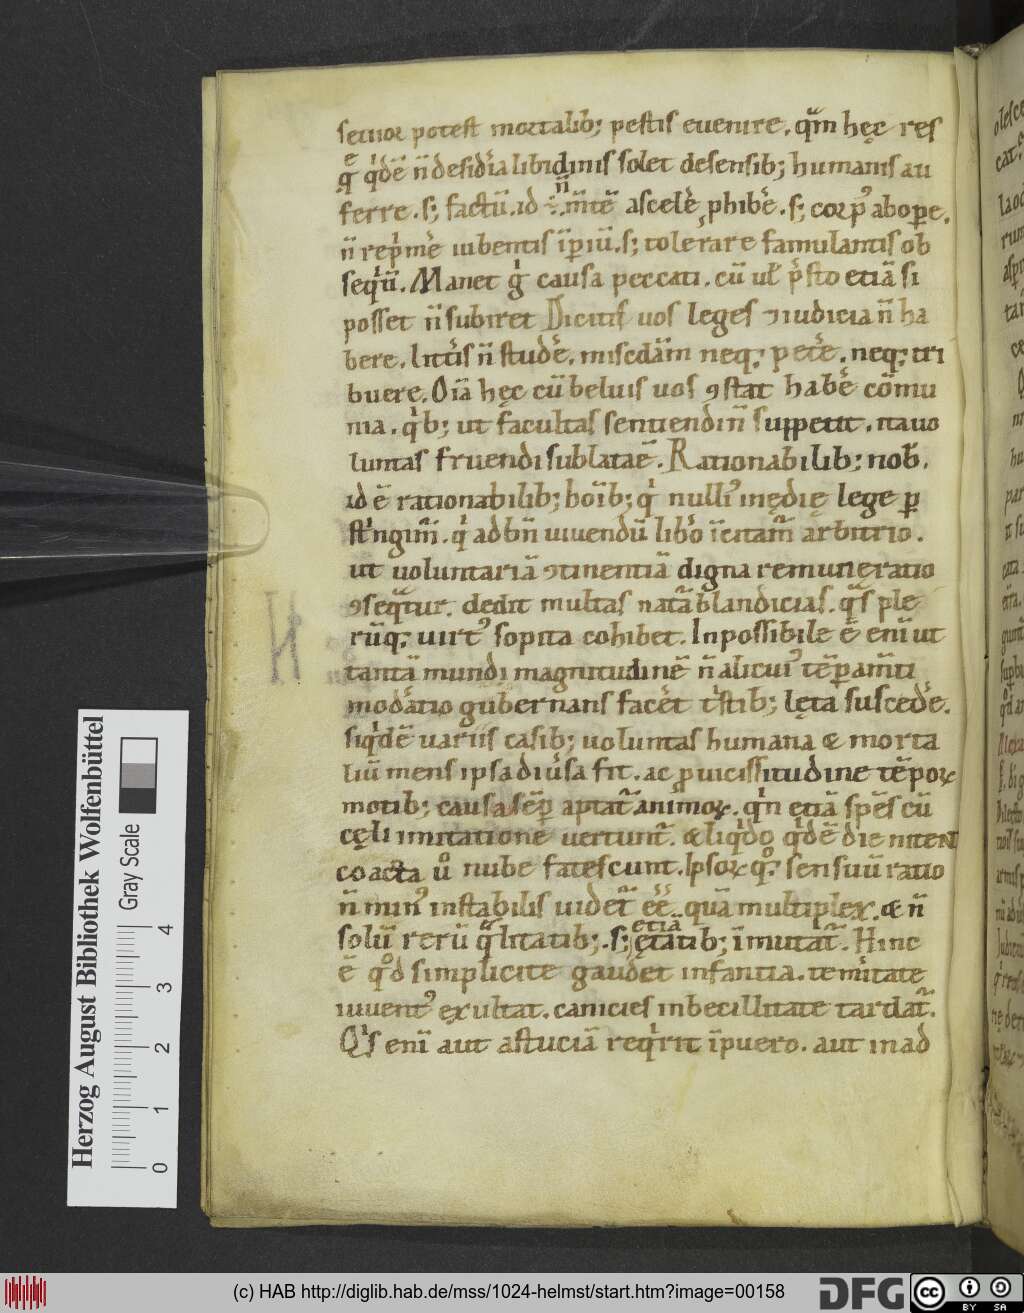 seuior potest mortalib; pestis euenire. qm̄ hęc res
q̄ ę qͥdē n̄ desid̾ia libidinis solet defensib; humanis au
ferre. s; factū. id n̄ ÷ m̄te asceled̾ phibe̾. s; corp᾽ ab opere.
n̄ rep̾me̾ iubentis īp̄iū. s; tolerare famulantis ob
seqͥū. Manet gͥ causa peccati. cū ul̾ p̾sto etiā si
posset n̄ subiret Dicitis uos leges ⁊ iudicia n̄ ha
bere. litt̾is n̄ stude̾. misc̾dām neq; pete̾. neq; tri
buere. Oīa hęc cū beluis uos ꝯstat habe̾ cōmu
nia. qͥb; ut facultas sentiendi n̄ suppetit. ita uo
luntas fruendi sublata ē. Rationabilib; nob̾.
id ē rationabilib; hoīb; qͥ nulli᾽ inędię lege p̱
st̾ngim̾. qͥ ad bn̄ uiuendū lib̾o īcitam̾ arbitrio.
ut uoluntariā ꝯtinentiā digna remuneratio
ꝯseqͣtur. dedit multas nat̾a blandicias. qͣs ple
rūq; uirt᾽ sopita cohibet. Inpossibile ē enī ut
tantā mundi magnitudinē n̄ alicui᾽ tēp̱am̄ti
mod̾atio gubernans face̾t t̾stib; lęta suscede̾.
siqͥdē uariis casib; uoluntas humana & morta
liū mens ipsa diu̾sa fit. ac p̱ uicissitudine tēpoꝝ
motib; causa sēp̱ aptat̾ animoꝝ. qͥn etiā sp̄es cū
cęli imitatione uertunt̾. & liqͥdo qͥdē die niten
coacta u̾o nube fatescunt. Ipsoꝝ qͦq; sensuū ratio
n̄ min᾽ instabilis uidet̾ ēē. quā multiplex. & n̄
solū rerū qͣlitatib;. s; etiā ętatib; īmutat̾. Hinc
ē qͦd simplicite gaudet infantia. tem̾itate
iuuent᾽ exultat. canicies inbecillitate tardat̾.
Qͥs enī aut astuciā reqͥrit ī puero. aut in ad
N
Herzog August Bibliothek Wolfenbüttel
Gray Scale
0 1 2 3 4
(c) HAB http://diglib.hab.de/mss/1024-helmst/start.htm?image=00158
DFG
cc BY SA